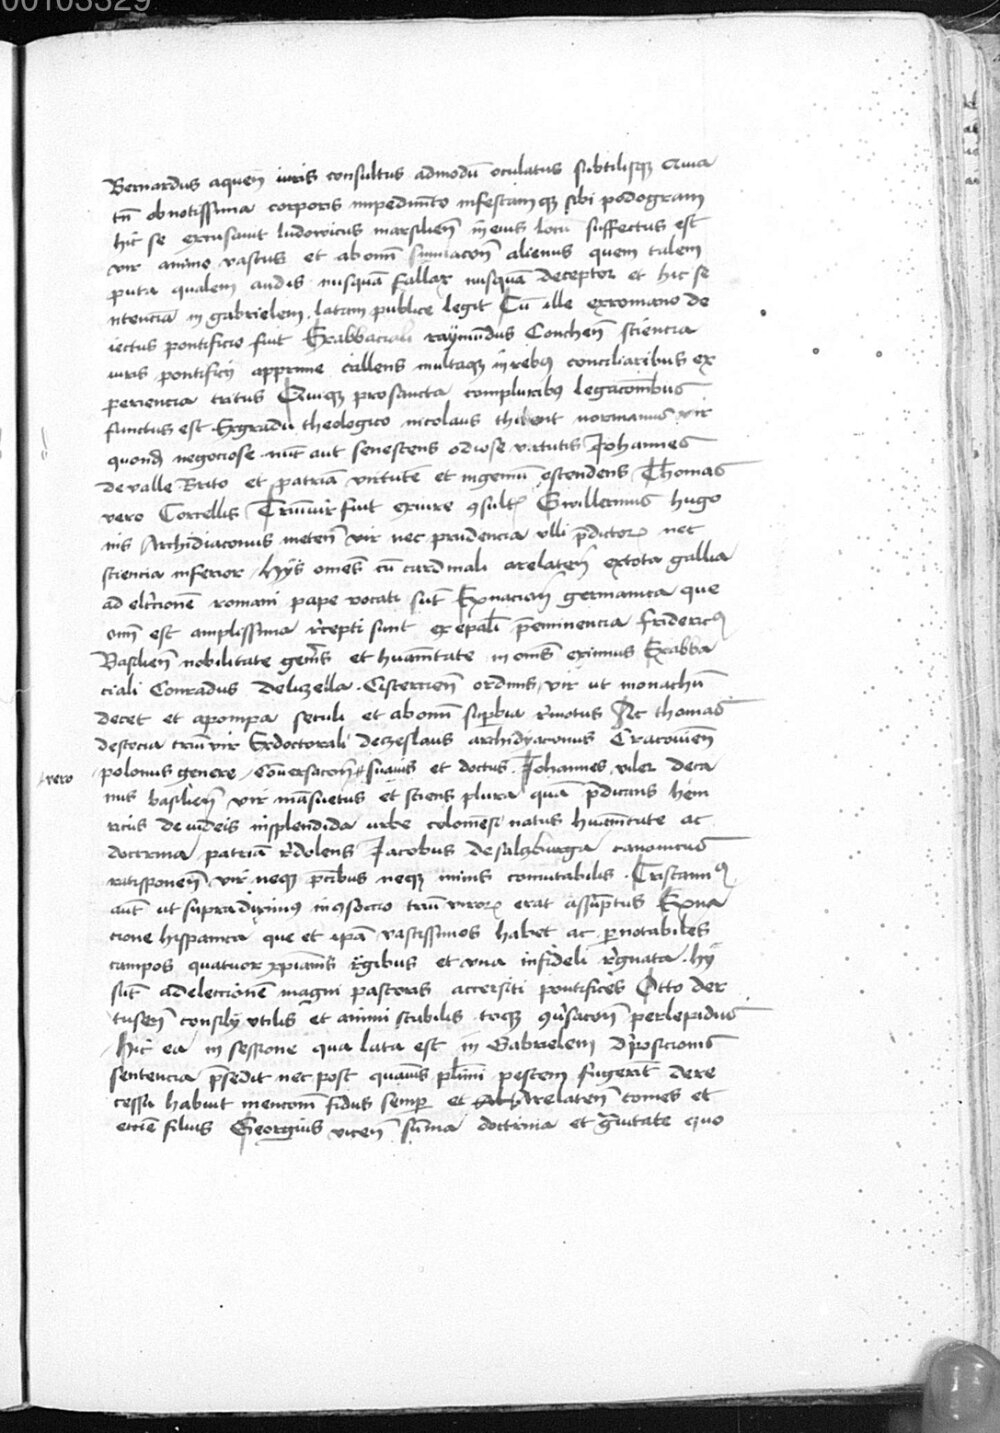 00103329
Bernardus aqueñ iuris consultus admodū oculatus subtilisqz Quia
tñ ob notissima corporis impedimēto infestamqz sibi podogram
hic se excusauit ludouicus marsilieñ in eius locū suffectus est
vir animo vastus et ab omni simiacoñ alienus quem talem
puta qualem audis nusquā fallax nusquā deceptor et hic se
ntencia in gabrielem latam publice legit Cū ille ex romano de
iectus pontificio fuit Ex abbaciali raÿmūdus Concheñ sciencia
iuris pontificij apprime callens multaqz in rebus conciliaribus ex
periencia tritus Quiqz pro sancta compluribus legacōnibus
functus est Ex gradu theologico nicolaus thibout normanus vir
quond negociose nūc aut senescens odiose virtutis Johannes
de valle Brito et patriā virtutē et ingeniū ostendens Thomas
vero Corcellis Triūuir fuit ex iure 9sult Gwillermus hugo
nis Archidiaconus meteñ vir nec prudencia vlli pdictor nec
sciencia inferior / Hijs omēs cū cardinali arelateñ ex tota gallia
ad eleccionē romani pape vocati sūt Ex nacioñ germanica que
omī est amplissima recepti sunt ex epali preminencia fridericus
Basilieñ nobilitate generis et huaītate in omēs eximius Ex abba
ciali Conradus de luzella Cistercieñ ordinis vir ut monachū
decet et a pompa seculi et ab omni supbia remotus Ac thomas
de scocia triūvir Ex doctorali dezeslaus archidyaconus Cracouieñ
vero
polonus genere / Conuersacoñ suauis et doctus Johannes wiler deca
nus basilieñ vir māsuetus et sciens plura quā pdicans hein
ricus de iudeis in splendida vrbe coloniēsi natus huaītate ac
doctrina patriā redolens Jacobus de salzburga canonicus
ratisponeñ vir neqz pcibus neqz minis comutabilis Cristannus
aūt ut supra diximus in 9sorcio triū viror erat assūptus Ex na
cione hispanica que et ipā vastissimos habet ac pnotabiles
campos quatuor xpianis regibus et vna infideli regnata Hij
sūt ad eleccionē magni pastoris accersiti pontifices Otto der
tuseñ consilij vtilis et animi stabilis toqz 9uersacoñ perlepidus
hic ea in sessione qua lata est in Gabrielem depositionis
sentencia psedit nec post quāuis plimi pestem fugerēt de re
cessu habuit mencoñ fidus semp et Arelateñ comes et
eciē filius Georgius viceñ sūma doctrina et grauitate quo